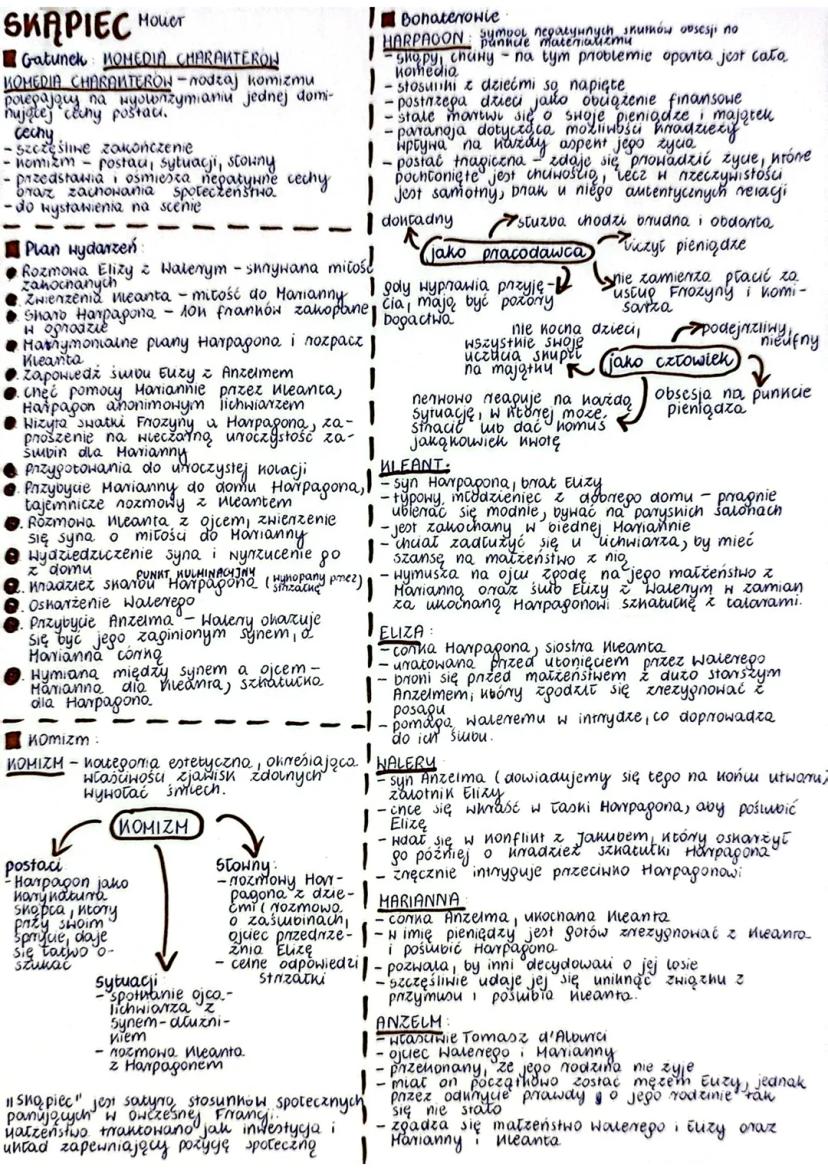 SKĄPIEC Molier
Gatunek: KOMEDIA CHARAKTERÓW
KOMEDIA CHARAKTERÓW - rodzaj komizmu
polegający na wyolbrzymianiu jednej domi-
nującej cechy postaci.
cechy
- szczęśliwe zakończenie
- komizm - postaci, sytuacji, słowny
- przedstawia i ośmiesza negatywne cechy
oraz zachowania społeczeństwa
- do wystawienia na scenie
Plan wydarzeń:
Rozmowa Elizy z Walerym - skrywana miłość
zakochanych
Zwierzenia Kleanta - miłość do Marianny
Skarb Harpagona - 10k franków zakopane
w ogrodzie
Matrymonialne plany Harpagona i rozpacz
Kleanta
Zapowiedź ślubu Elizy z Anzelmem
Chęć pomocy Mariannie przez Kleanta,
Harpagon anonimowym lichwiarzem
Wizyta swatki Frozyny u Harpagona, za-
proszenie na wieczorną uroczystość za-
ślubin dla Marianny
Przygotowania do uroczystej kolacji
Przybycie Marianny do domu Harpagona,
tajemnicze rozmowy z Kleantem
Rozmowa Kleanta z ojcem, zwierzenie
się syna o miłości do Marianny
Wydziedziczenie syna i wyrzucenie go
z domu
PUNKT KULMINACYJNY
Kradzież skarbu Harpagona (wykopany przez
strzałkę)
Oskarżenie Walerego
Przybycie Anzelma - Walery okazuje
się być jego zaginionym synem, a
Marianna córką
Wymiana między synem a ojcem -
Marianna dla Kleanta, szkatułka
dla Harpagona
Komizm:
KOMIZM - kategoria estetyczna, określająca
właściwości zjawisk zdolnych
wywołać śmiech.
KOMIZM
postaci
- Harpagon jako
karykatura
skąpca, który
przy swoim
sprycie, daje
się łatwo o-
szukać
Słowny:
- rozmowy Har-
pagona z dzie-
ćmi (rozmowa
o zaślubinach,
ojciec przedrze-
źnia Elizę
- celne odpowiedzi
Strzałki
Sytuacji
- spotkanie ojca-
lichwiarza z
synem-dłużni-
kiem
- rozmowa Kleanta
z Harpagonem
"Skąpiec" jest satyrą stosunków społecznych
panujących w ówczesnej Francji.
Małżeństwo traktowano jak inwestycja i
układ zapewniający pozycję społeczną
Bohaterowie:
HARPAGON: symbol negatywnych skutków obsesji na
punkcie materializmu
- skąpy, chciwy - na tym problemie oparta jest cała
komedia
- stosunki z dziećmi są napięte
- postrzega dzieci jako obciążenie finansowe
- stale martwi się o swoje pieniądze i majątek
- paranoja dotycząca możliwości kradzieży
wpływa na każdy aspekt jego życia
- postać tragiczna - zdaje się prowadzić życie, które
pochłonięte jest chciwością, lecz w rzeczywistości
jest samotny, brak u niego autentycznych relacji
jako pracodawca
dokładny
służba chodzi brudna i obdarta
liczył pieniądze
nie zamierza płacić za
usług Frozyny i komi-
sarza
gdy wyprawia przyję-
cia, mają być pozory
bogactwa
jako człowiek
nie kocha dzieci,
wszystkie swoje
uczucia skupił
na majątku
podejrzliwy,
nieufny
obsesja na punkcie
pieniądza
nerwowo reaguje na każdą
sytuację, w której może
stracić lub dać komuś
jakąkolwiek kwotę
KLEANT:
- syn Harpagona, brat Elizy
- typowy młodzieniec z dobrego domu - pragnie
ubierać się modnie, bywać na paryskich salonach
- jest zakochany w biednej Mariannie
- chciał zadłużyć się u lichwiarza, by mieć
szansę na małżeństwo z nią
- wymusza na ojcu zgodę na jego małżeństwo z
Marianną oraz ślub Elizy z Walerym w zamian
za ukochaną Harpagonowi szkatułkę z talarami.
ELIZA:
- córka Harpagona, siostra Kleanta
- uratowana przed utonięciem przez Walerego
- broni się przed małżeństwem z dużo starszym
Anzelmem, który zgodził się zrezygnować z
posagu
- pomaga Waleremu w intrydze, co doprowadza
do ich ślubu.
WALERY
- syn Anzelma (dowiadujemy się tego na końcu utworu)
zalotnik Elizy
- chce się wkraść w łaski Harpagona, aby poślubić
Elizę
- wdał się w konflikt z Jakubem, który oskarżył
go później o kradzież szkatułki Harpagona
- zręcznie intryguje przeciwko Harpagonowi
MARIANNA:
- córka Anzelma, ukochana Kleanta
- w imię pieniędzy jest gotów zrezygnować z Kleanta
i poślubić Harpagona
- pozwala, by inni decydowali o jej losie
- szczęśliwie udaje jej się uniknąć związku z
przymusu i poślubia Kleanta.
ANZELM:
- właściwie Tomasz d'Alburci
- ojciec Walerego i Marianny
- przekonany, że jego rodzina nie żyje
- miał on początkowo zostać mężem Elizy, jednak
przez odkrycie prawdy o jego rodzinie tak
się nie stało
- zgadza się małżeństwo Walerego i Elizy oraz
Marianny i Kleanta